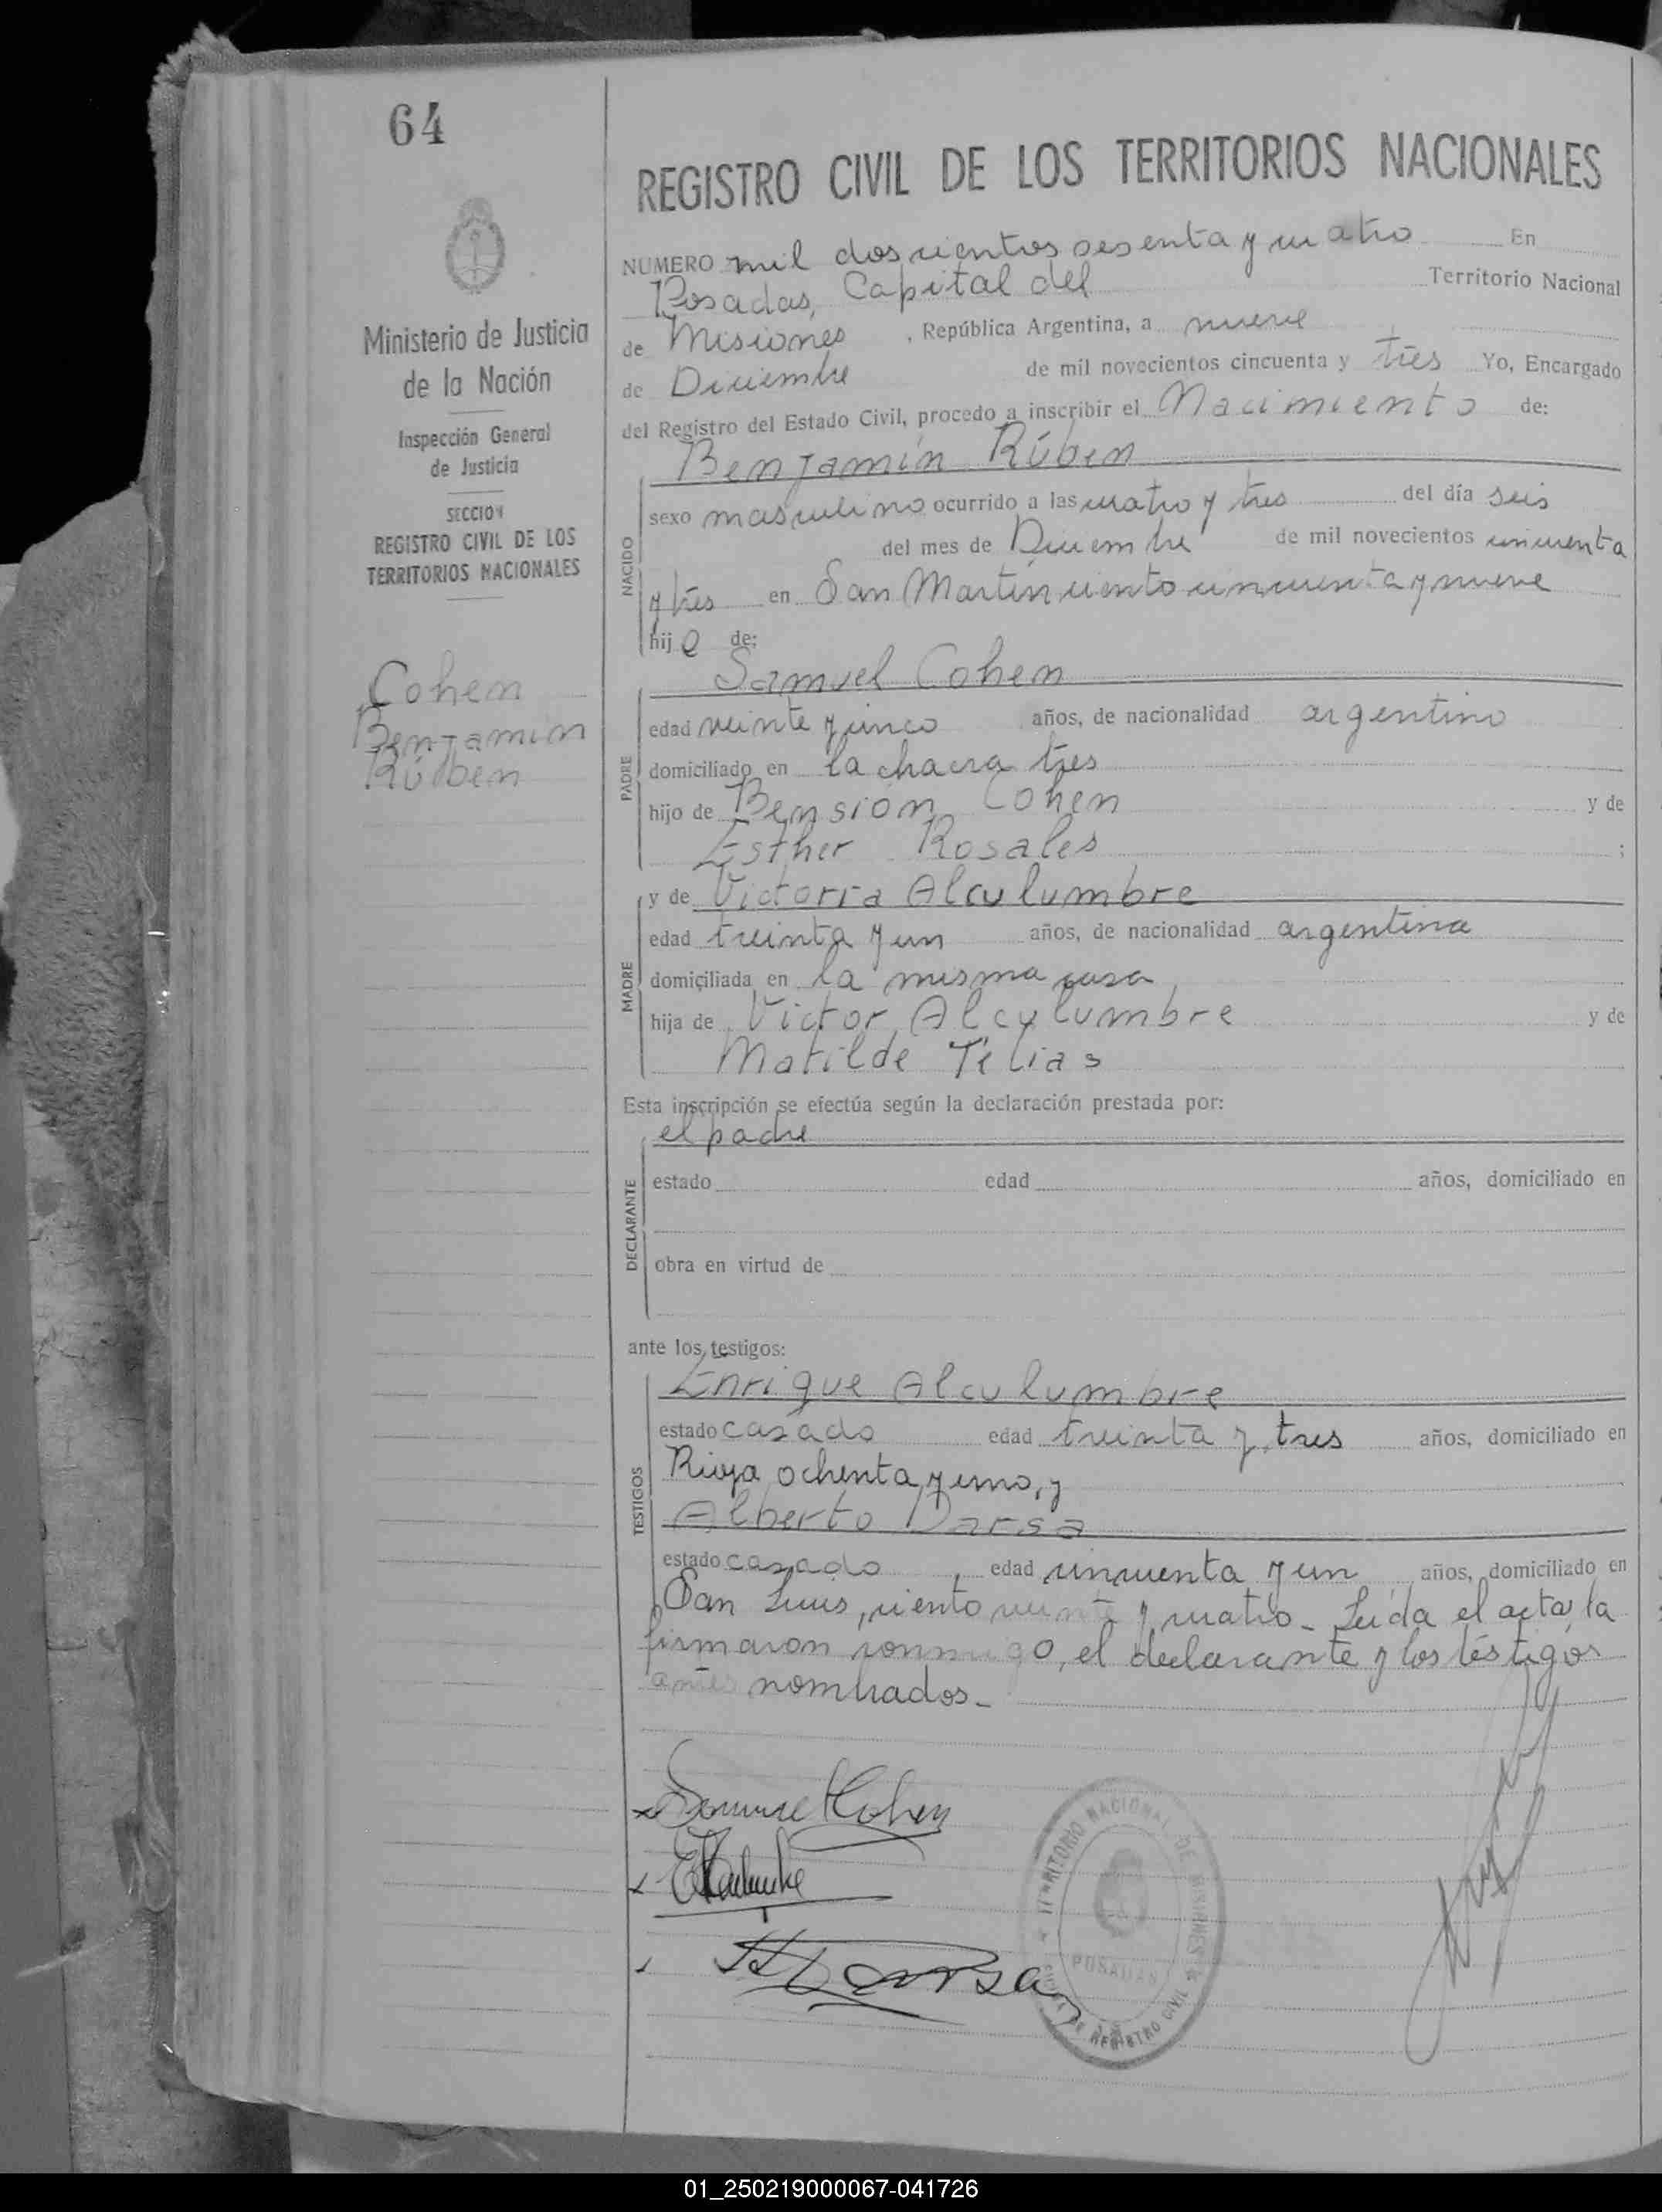 64
REGISTRO CIVIL DE LOS TERRITORIOS NACIONALES
Ministerio de Justicia
de la Nación
Inspección General
de Justicia
SECCION
REGISTRO CIVIL DE LOS
TERRITORIOS NACIONALES
Cohen
Benjamin
Rúben
NUMERO mil doscientos sesenta y cuatro En
Posadas, Capital del Territorio Nacional
de Misiones, República Argentina, a nueve
de Diciembre de mil novecientos cincuenta y tres Yo, Encargado
del Registro del Estado Civil, procedo a inscribir el Nacimiento de:
Benjamín Rúben
NACIDO
sexo masculino ocurrido a las cuatro y tres del día seis
del mes de Diciembre de mil novecientos cincuenta
y tres en San Martín ciento cincuenta y nueve
hijo de:
Samuel Cohen
PADRE
edad veinte y cinco años, de nacionalidad argentino
domiciliado en la chacra tres
hijo de Bension Cohen y de
Esther Rosales ;
MADRE
y de Victoria Alculumbre
edad treinta y un años, de nacionalidad argentina
domiciliada en la misma casa
hija de Victor Alculumbre y de
Matilde Telias
Esta inscripción se efectúa según la declaración prestada por:
el padre
DECLARANTE
estado edad años, domiciliado en
obra en virtud de
ante los testigos:
Enrique Alculumbre
TESTIGOS
estado casado edad treinta y tres años, domiciliado en
Rioja ochenta y uno, y
Alberto Darsa
estado casado, edad cincuenta y un años, domiciliado en
San Luis, ciento veinte y cuatro_ Leída el acta, la
firmaron conmigo, el declarante y los testigos
antes nombrados_
Samuel Cohen
Darsa
TERRITORIO NACIONAL DE MISIONES
POSADAS
DE REGISTRO CIVIL
01_250219000067-041726